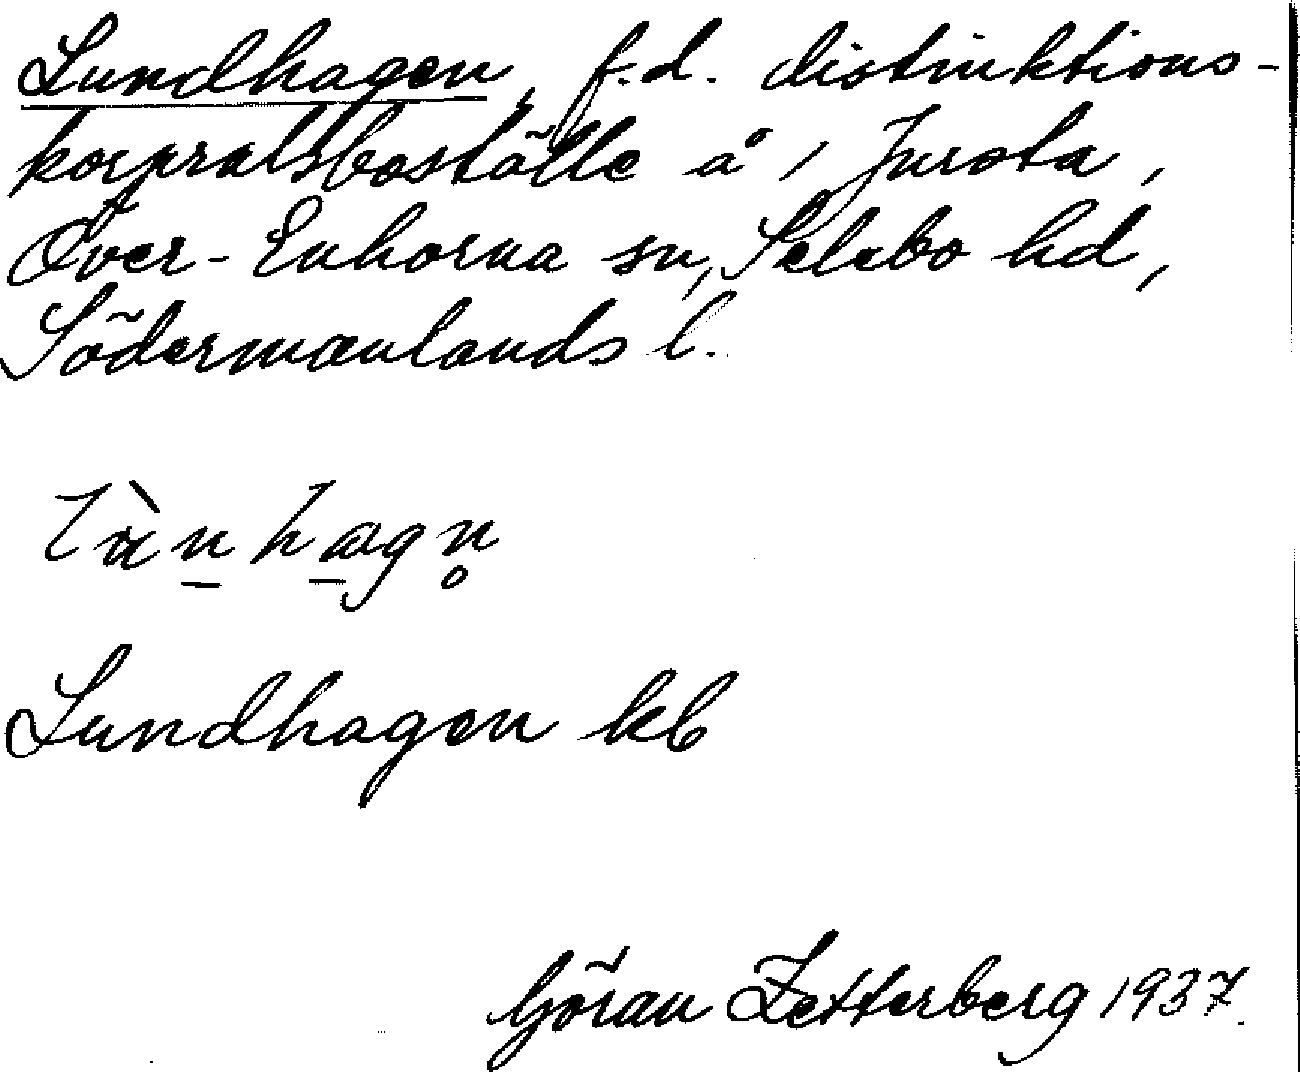 Lundhagen, f.d. distinktions-
korpralsboställe å 1 Jursta,
Över-Enhorna sn, Selebo hd,
Södermanlands l.
Lundhagen kb
Göran Zetterberg 1937.